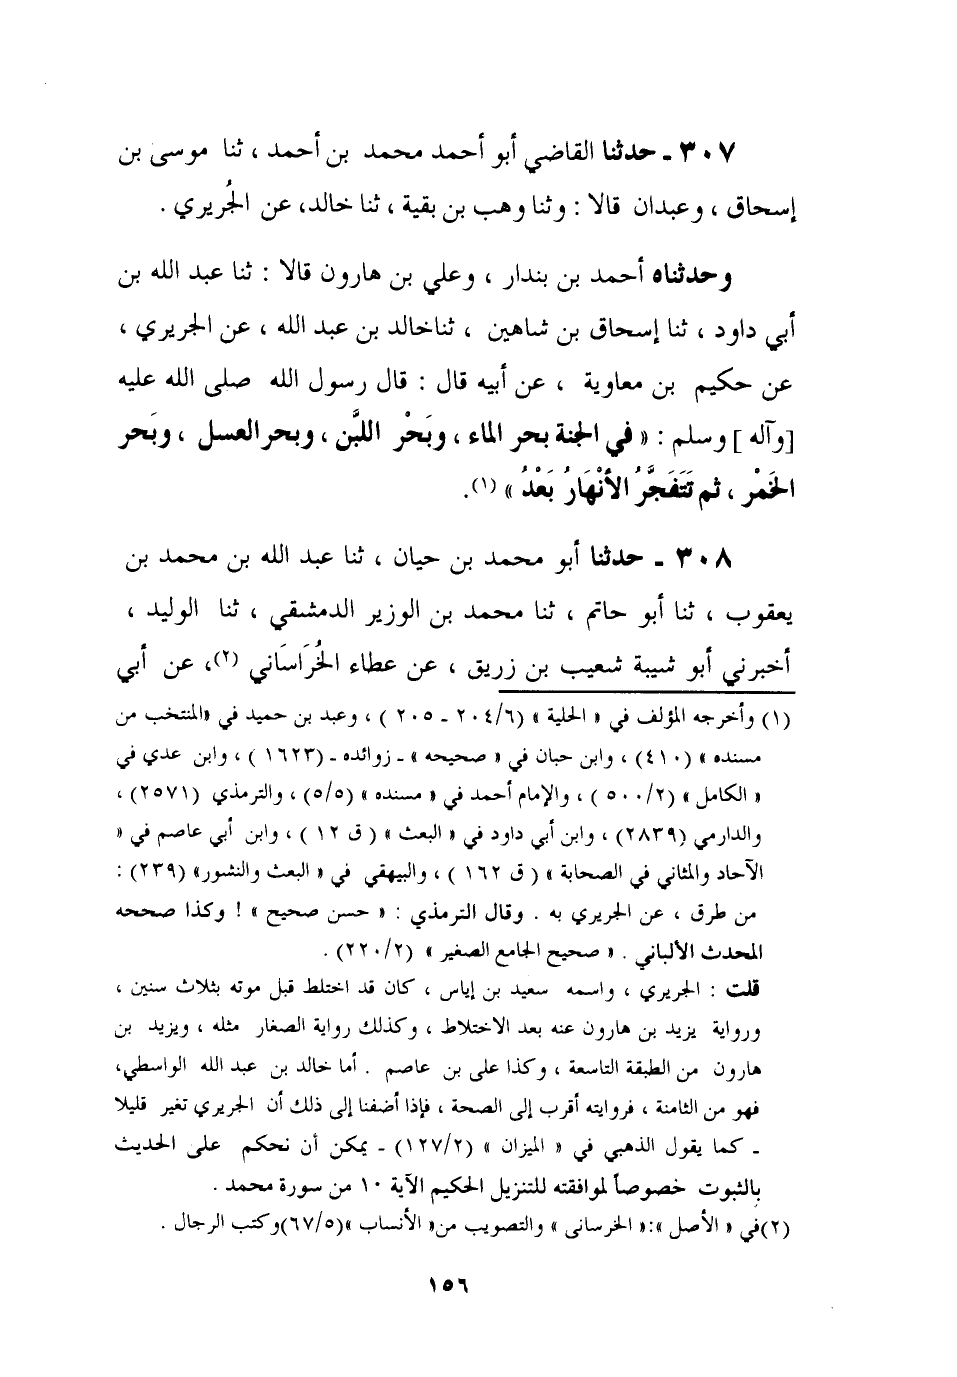 ٣٠٧ ـ حدثنا القاضي أبو أحمد محمد بن أحمد ، ثنا موسى بن
إسحاق ، وعبدان قالا : وثنا وهب بن بقية ، ثنا خالد، عن الجُريري .
وحدثناه أحمد بن بندار ، وعلي بن هارون قالا : ثنا عبد الله بن
أبي داود ، ثنا إسحاق بن شاهين ، ثناخالد بن عبد الله ، عن الجريري ،
عن حكيم بن معاوية ، عن أبيه قال : قال رسول الله صلى الله عليه
[وآله] وسلم : « في الجنة بحر الماء ، وبَحْر اللبَّن ، وبحر العسل ، وبَحر
الخَمْر ، ثم تَتَفَجَّرُ الأنْهَارُ بَعْدُ » (١).
٣٠٨ ـ حدثنا أبو محمد بن حيان ، ثنا عبد الله بن محمد بن
يعقوب ، ثنا أبو حاتم ، ثنا محمد بن الوزير الدمشقي ، ثنا الوليد ،
أخبرني أبو شيبة شعيب بن زريق ، عن عطاء الخُرَاسَاني (٢)، عن أبي
(١) وأخرجه المؤلف في « الحلية » (٢٠٤/٦ ـ ٢٠٥ ) ، وعبد بن حميد في «المنتخب من
مسنده » (٤١٠) ، وابن حبان في « صحيحه » ـ زوائده ـ (١٦٢٣ ) ، وابن عدي في
« الكامل » (٥٠٠/٢ ) ، والإمام أحمد في « مسنده » (٥/٥) ، والترمذي (٢٥٧١) ،
والدارمي (٢٨٣٩) ، وابن أبي داود في « البعث » ( ق ١٢ ) ، وابن أبي عاصم في «
الآحاد والمثاني في الصحابة » ( ق ١٦٢ ) ، والبيهقي في « البعث والنشور» (٢٣٩) :
من طرق ، عن الجريري به . وقال الترمذي : « حسن صحيح » ! وكذا صححه
المحدث الألباني . « صحيح الجامع الصغير » (٢٢٠/٢) .
قلت : الجريري ، واسمه سعيد بن إياس ، كان قد اختلط قبل موته بثلاث سنين ،
ورواية يزيد بن هارون عنه بعد الاختلاط ، وكذلك رواية الصغار مثله ، ويزيد بن
هارون من الطبقة التاسعة ، وكذا على بن عاصم . أما خالد بن عبد الله الواسطي،
فهو من الثامنة ، فروايته أقرب إلى الصحة ، فإذا أضفنا إلى ذلك أن الجريري تغير قليلا
ـ كما يقول الذهبي في « الميزان » (١٢٧/٢) ـ يمكن أن نحكم على الحديث
بالثبوت خصوصاً لموافقته للتنزيل الحكيم الآية ١٠ من سورة محمد .
(٢)في « الأصل »:« الخرسانى » والتصويب من« الأنساب »(٦٧/٥)وكتب الرجال .
١٥٦